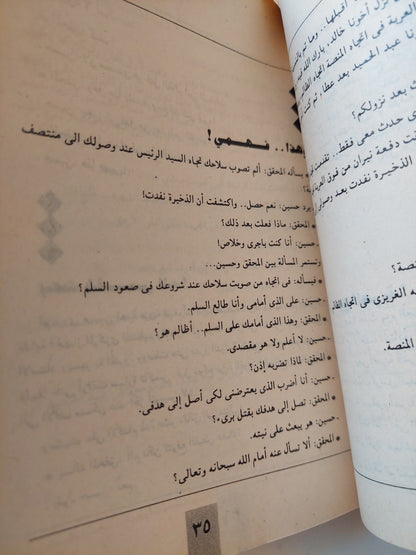 هذا.. فهمي!
● يسأله المحقق: ألم تصوب سلاحك تجاه السيد الرئيس عند وصولك الى منتصف
يرد حسين: نعم حصل.. واكتشفت أن الذخيرة نفدت!
المحقق: ماذا فعلت بعد ذلك؟
ـ حسين: أنا كنت باجرى وخلاص!
وتستمر المسألة بين المحقق وحسين...
● فيسأله: فى اتجاه من صوبت سلاحك عند شروعك فى صعود السلم؟
ـ حسين: على الذى أمامى وأنا طالع السلم.
● المحقق: وهذا الذى أمامك على السلم.. أظالم هو؟
ـ حسين: لا أعلم ولا هو مقصدى.
● المحقق: لماذا تضربه إذن؟
ـ حسين: أنا أضرب الذى يعترضنى لكى أصل إلى هدفى.
● المحقق: تصل إلى هدفك بقتل برىء؟
ـ حسين: هو يبعث على نيته.
● المحقق: ألا نسأل عنه أمام الله سبحانه وتعالى؟
٣٥
أقبلها.. وما تم بالنـ
نزل أخونا خالد، بارك الله فيه
العربة فى اتجاه المنصة اتجاه القا
نا عبد الحميد بعد عطا، ثم كنت
بعد نزولكم؟
ى حدث معى فقط.. تقدمت فى
ت دفعة نيران من فوق العربة
الذخيرة نفدت بعد وصولى
نصة؟
ه الغريزى فى اتجاه القائد
المنصة.